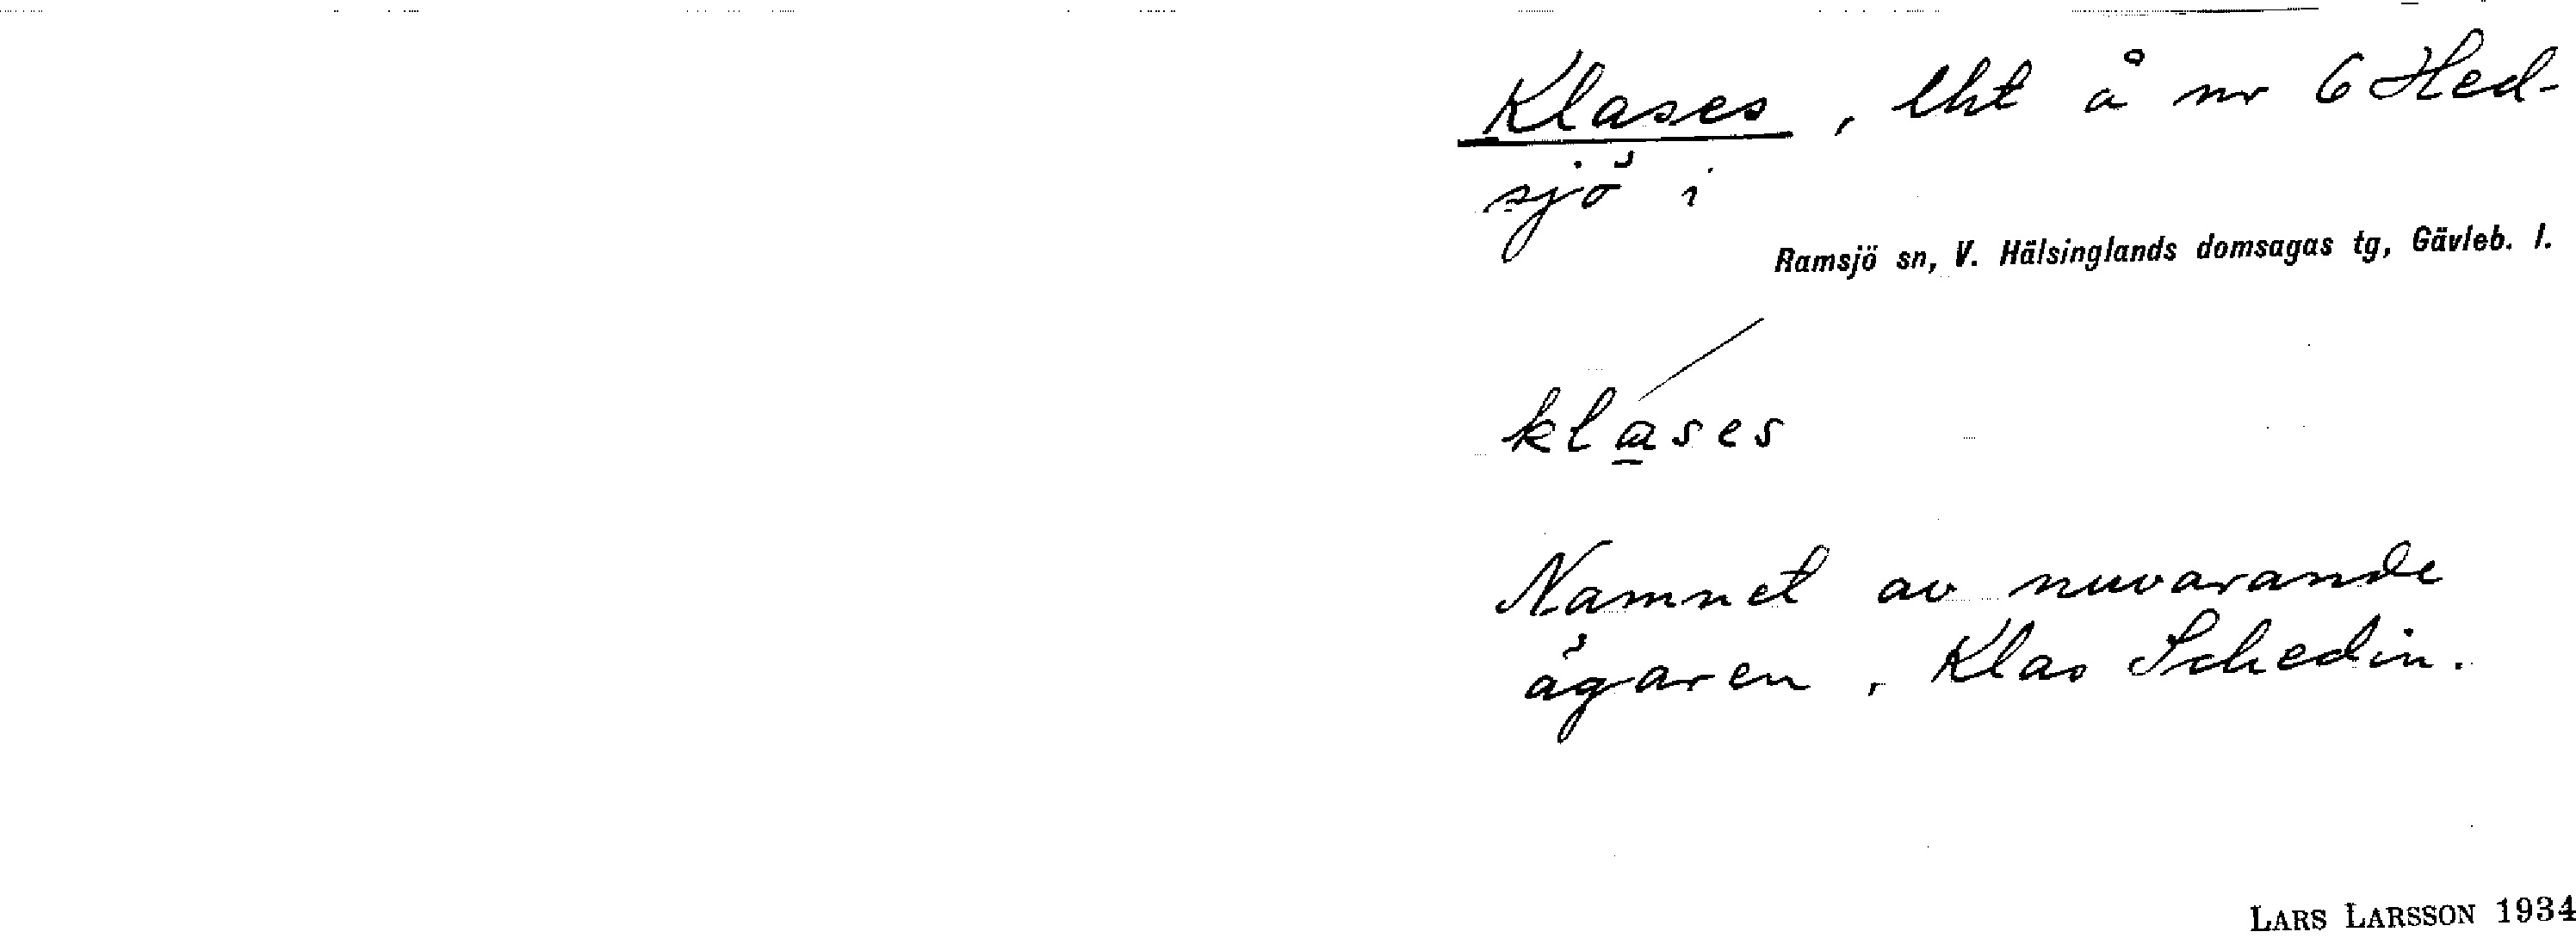 Klases, lht å nr 6 Hed-
sjö i
Ramsjö sn, V. Hälsinglands domsagas tg, Gävleb. l.
klases
Namnet av nuvarande
ägaren, Klas Schedin.
LARS LARSSON 1934